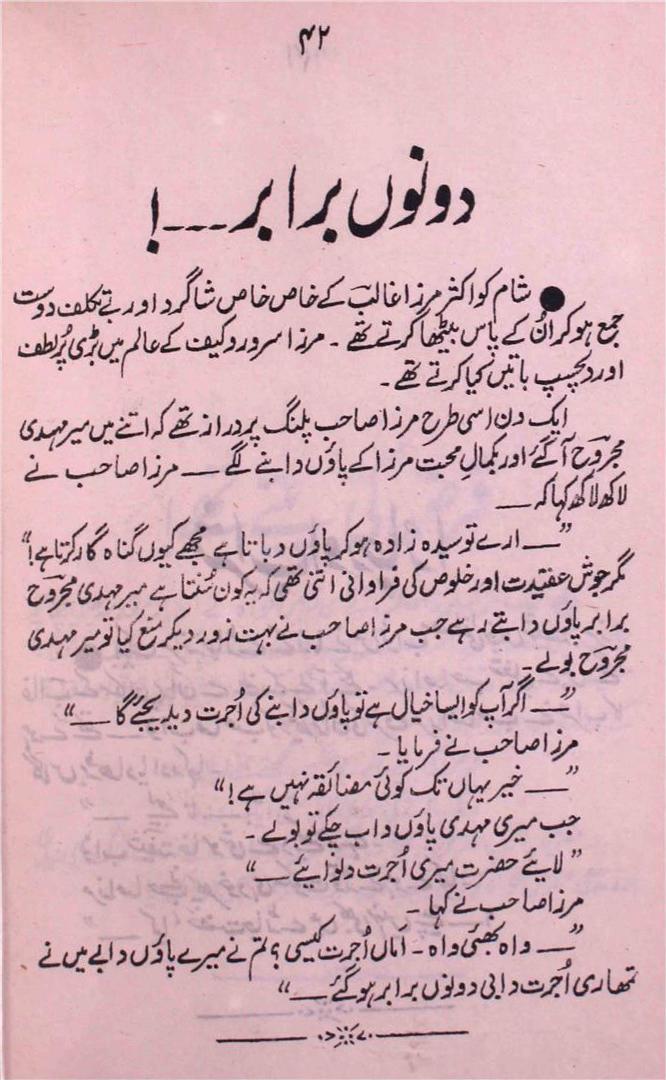 ۴۲
دونوں برابر ۔۔۔!
● شام کو اکثر مرزا غالبؔ کے خاص خاص شاگرد اور بے تکلف دوست
جمع ہو کر اُن کے پاس بیٹھا کرتے تھے ۔ مرزا سرور و کیف کے عالم میں بڑی پُر لطف
اور دلچسپ باتیں کیا کرتے تھے ۔
ایک دن اسی طرح مرزا صاحب پلنگ پر دراز تھے کہ اتنے میں میر مہدی
مجروحؔ آگئے اور بکمالِ محبت مرزا کے پاؤں دابنے لگے ــــ مرزا صاحب نے
لاکھ لاکھ کہا کہ ــــ
”ــــ ارے تو سیدہ زادہ ہو کر پاؤں دباتا ہے مجھے کیوں گناہ گار کرتا ہے!“
مگر جوش عقیدت اور خلوص کی فراوانی اتنی تھی کہ یہ کون سُنتا ہے میر مہدی مجروح
برابر پاؤں دابتے رہے جب مرزا صاحب نے بہت زور دیکر منع کیا تو میر مہدی
مجروحؔ بولے ۔
”ــــ اگر آپ کو ایسا خیال ہے تو پاؤں دابنے کی اُجرت دیدیجئے گا ــــ“
مرزا صاحب نے فرمایا ۔
”ــــ خیر یہاں تک کوئی مضائقہ نہیں ہے!“
جب میری مہدی پاؤں داب چکے تو بولے ۔
”لایئے حضرت میری اُجرت دلوایئے ــــ“
مرزا صاحب نے کہا ۔
”ــــ واہ بھئی واہ ۔ اماں اُجرت کیسی؟ تم نے میرے پاؤں دابے میں نے
تمھاری اُجرت دابی دونوں برابر ہو گئے ــــ“